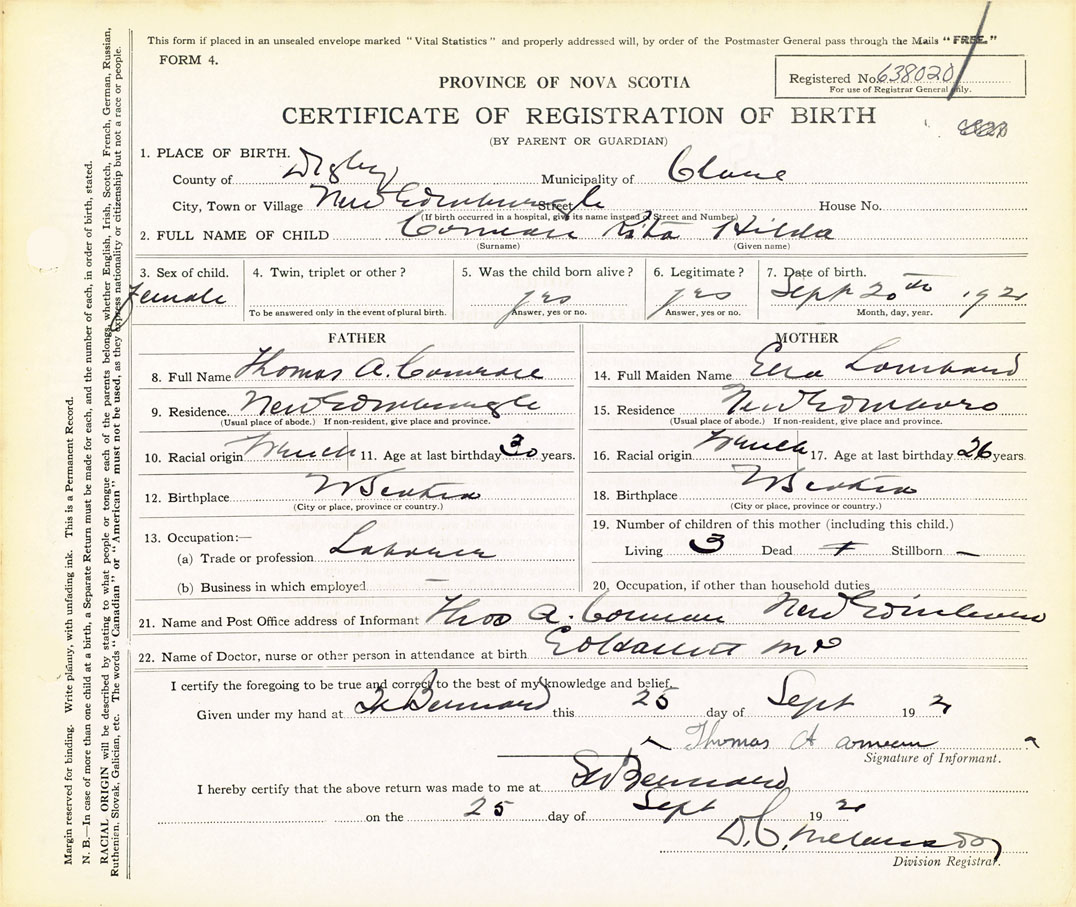 This form if placed in an unsealed envelope marked "Vital Statistics" and properly addressed will, by order of the Postmaster General pass through the Mails "FREE."
FORM 4.
Registered No. 638020
For use of Registrar General only.
PROVINCE OF NOVA SCOTIA
CERTIFICATE OF REGISTRATION OF BIRTH
(BY PARENT OR GUARDIAN)
1. PLACE OF BIRTH.
County of Digby Municipality of Clare
City, Town or Village New Edinburgh Street House No.
(If birth occurred in a hospital, give its name instead of Street and Number)
2. FULL NAME OF CHILD Comeau Rita Hilda
(Surname) (Given name)
3. Sex of child. 4. Twin, triplet or other? 5. Was the child born alive? 6. Legitimate? 7. Date of birth.
Female yes yes Sept 20th 192
To be answered only in the event of plural birth. Answer, yes or no. Answer, yes or no. Month, day, year.
FATHER MOTHER
8. Full Name Thomas A. Comeau 14. Full Maiden Name Lombard
9. Residence New Edinburgh 15. Residence New Edinboro
(Usual place of abode.) If non-resident, give place and province. (Usual place of abode.) If non-resident, give place and province.
10. Racial origin French 11. Age at last birthday 30 years. 16. Racial origin French 17. Age at last birthday 26 years.
12. Birthplace N Scotia 18. Birthplace N Scotia
(City or place, province or country.) (City or place, province or country.)
13. Occupation:— 19. Number of children of this mother (including this child.)
(a) Trade or profession Labourer Living 3 Dead Stillborn —
(b) Business in which employed — 20. Occupation, if other than household duties
21. Name and Post Office address of Informant Thos A. Comeau New
22. Name of Doctor, nurse or other person in attendance at birth MD
I certify the foregoing to be true and correct to the best of my knowledge and belief.
Given under my hand at St Bernard this 25 day of Sept 19 2
Thomas A Comeau
Signature of Informant.
I hereby certify that the above return was made to me at St Bernard
on the 25 day of Sept 19 2
Division Registrar.
Margin reserved for binding. Write plainly, with unfading ink. This is a Permanent Record.
N. B.—In case of more than one child at a birth, a Separate Return must be made for each, and the number of each, in order of birth, stated.
RACIAL ORIGIN will be described by stating to what people or tongue each of the parents belongs, whether English, Irish, Scotch, French, German, Russian,
Ruthenian, Slovak, Galician, etc. The words "Canadian" or "American" must not be used, as they express nationality or citizenship but not a race or people.